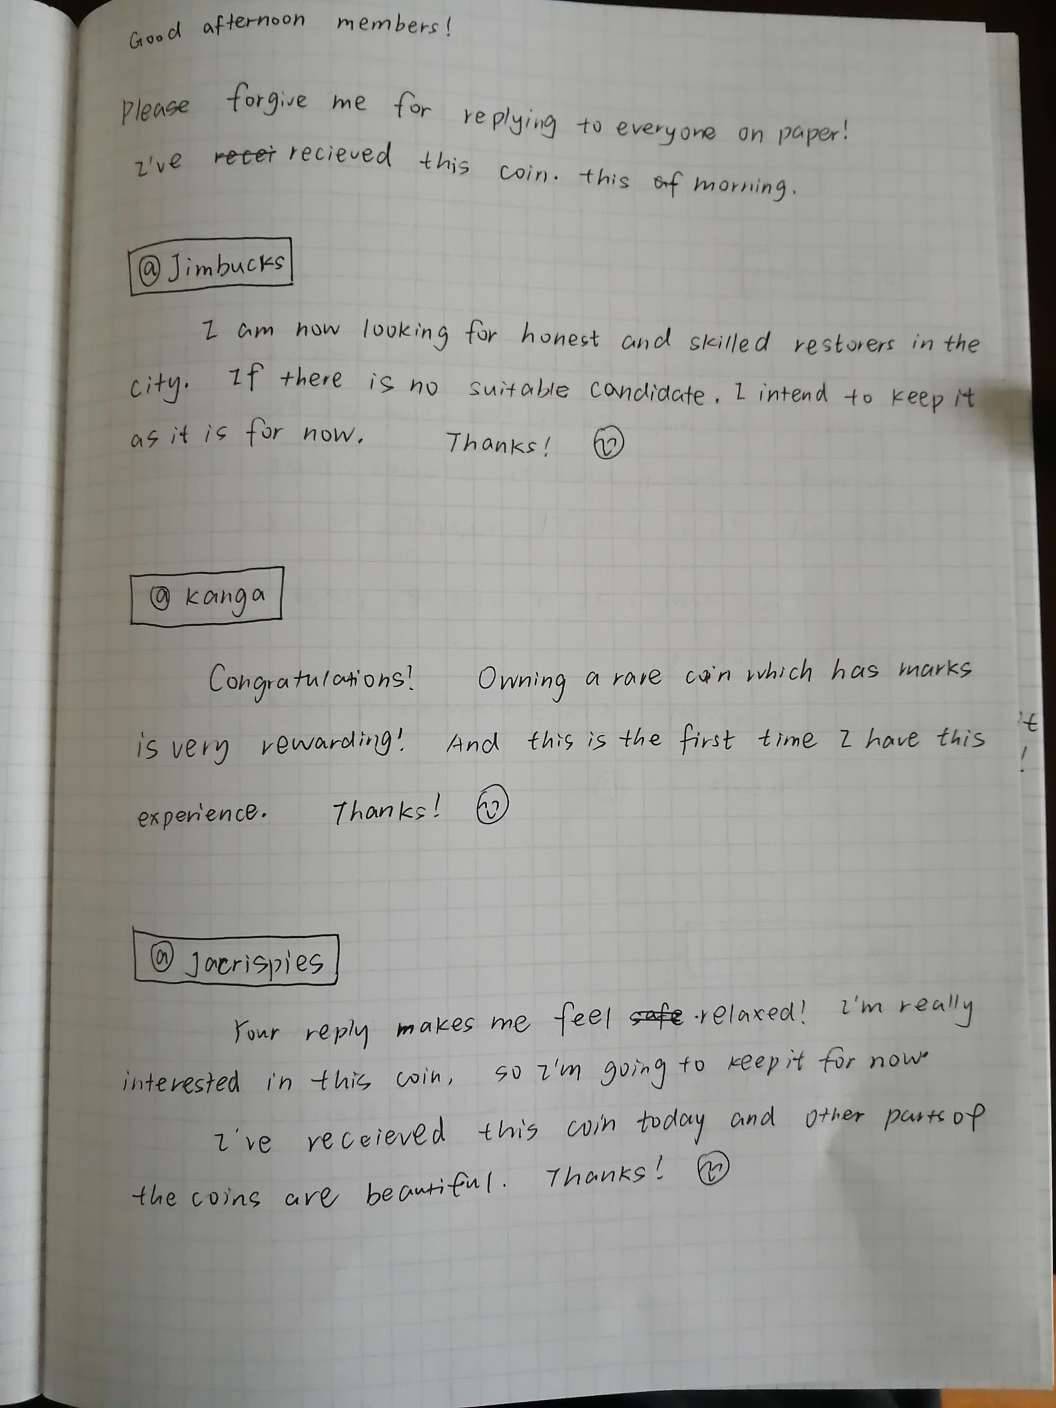 Good afternoon members!
Please forgive me for replying to everyone on paper!
I've recei recieved this coin. this of morning.
@Jimbucks
I am now looking for honest and skilled restorers in the
city. If there is no suitable candidate. I intend to keep it
as it is for now. Thanks!
@kanga
Congratulations! Owning a rare coin which has marks
is very rewarding! And this is the first time I have this
experience. Thanks!
@Jacrispies
Your reply makes me feel safe relaxed! I'm really
interested in this coin, so I'm going to keep it for now
I've receieved this coin today and other parts of
the coins are beautiful. Thanks!